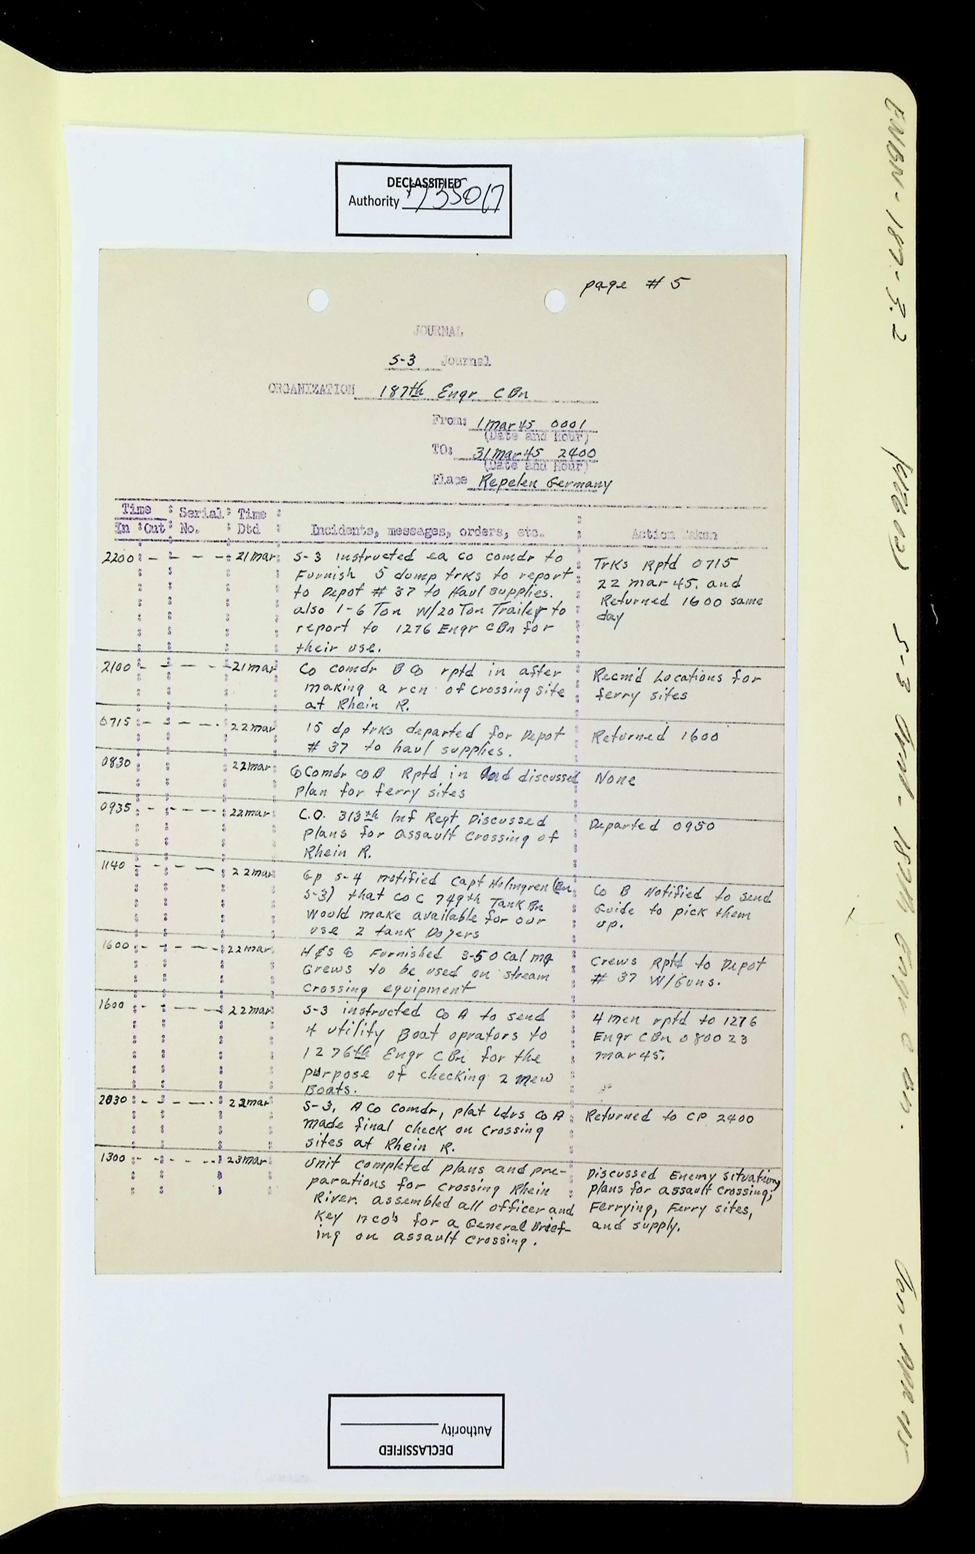 DECLASSIFIED
Authority 735017
page # 5
JOURNAL
S-3 Journal
ORGANIZATION 187th Engr C Bn
From: 1 Mar 45 0001
(Date and Hour)
TO: 31 Mar 45 2400
(Date and Hour)
Place Repelen Germany
Time Serial Time
In Out No. Dtd Incidents, messages, orders, etc. Action Taken
2200 21 Mar S-3 instructed ea co comdr to
Furnish 5 dump trks to report
to Depot # 37 to Haul supplies.
also 1-6 Ton W/20 Ton Trailer to
report to 1276 Engr C Bn for
their use.
Trks Rptd 0715
22 mar 45, and
Returned 1600 same
day
2100 21 mar Co comdr B Co rptd in after
making a rcn of crossing site
at Rhein R.
Recm'd Locations for
ferry sites
0715 22 mar 15 dp trks departed for Depot
# 37 to haul supplies.
Returned 1600
0830 22 mar Co Comdr Co B Rptd in and discussed
plan for ferry sites
None
0935 22 mar C.O. 313th Inf Regt Discussed
plans for assault Crossing of
Rhein R.
Departed 0950
1140 22 mar Gp S-4 notified Capt Holmgren (Bn
S-3) that Co C 749th Tank Bn
would make available for our
use 2 tank Dozers
Co B Notified to send
Guide to pick them
up.
1600 22 mar H & S Co Furnished 3-50 Cal mg
Crews to be used on stream
crossing equipment
Crews Rptd to Depot
# 37 W/Guns.
1600 22 mar S-3 instructed Co A to send
4 utility Boat oprators to
1276th Engr C Bn for the
purpose of checking 2 new
Boats.
4 men rptd to 1276
Engr C Bn 0800 23
mar 45.
2030 22 mar S-3, A Co Comdr, plat Ldrs Co A
made final check on Crossing
sites at Rhein R.
Returned to CP 2400
1300 23 mar Unit completed plans and pre-
parations for crossing Rhein
River. assembled all officer and
Key nco's for a General Brief-
ing on assault crossing.
Discussed Enemy situation,
plans for assault crossing,
Ferrying, Ferry sites,
and supply.
DECLASSIFIED
Authority
ENBN-187-3.2
S-3 Jrnl. 187th Engr C Bn.